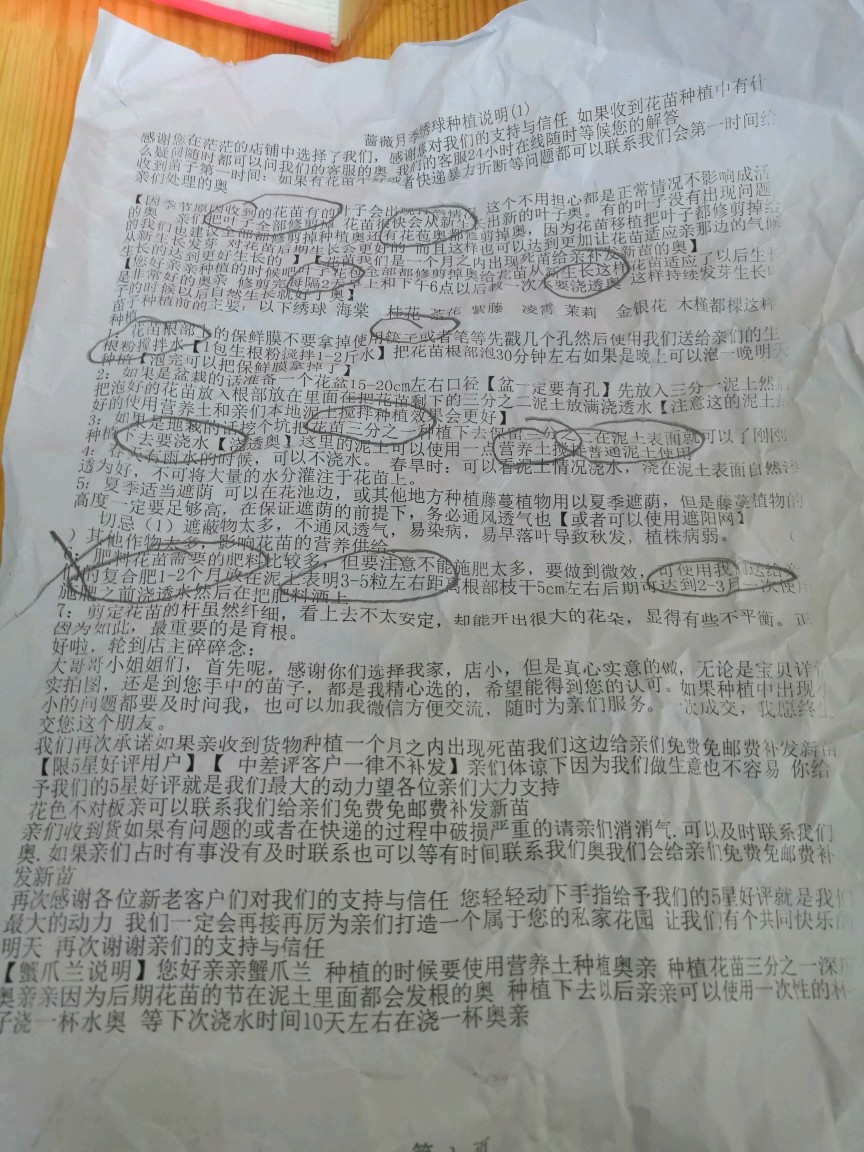 蔷薇月季绣球种植说明(1)
感谢您在茫茫的店铺中选择了我们，感谢您对我们的支持与信任 如果收到花苗种植中有什
么疑问随时都可以问我们的客服的奥 我们的客服24小时在线随时等候您的解答
收到苗子第一时间：如果有花苗 或者快递暴力折断等问题都可以联系我们会第一时间给
亲们处理的奥
【因季节原因收到的花苗有的叶子会出 情 这个不用担心都是正常情况不影响成活
的奥 亲们把叶子全部修剪 花苗很快会从新长出新的叶子奥。有的叶子没有出现问题
的我们也建议全部都修剪掉种植奥还有花苞奥都剪掉奥，因为花苗移植把叶子都修剪掉给
从新生长发芽 对花苗后期生长会更好的 而且这样也可以达到更加让花苗适应亲那边的气候
生长的达到更好生长的 】【花苗我们是一个月之内出现死苗给亲补发新苗的奥】
【您好亲亲种植的时候吧叶子花苞全部都修剪掉奥给花苗从新生长这样花苗适应了以后生长
是非常好的奥亲 修剪完每隔2天早上和下午6点以后 一次水要浇透奥 这样持续发芽生长
了的时候以后自然生长就好了奥】
苗子种植前的主要：以下绣球 海棠 桂花 茶花 紫藤 凌霄 茉莉 金银花 木槿都棵这样
种植
1：花苗根部 的保鲜膜不要拿掉使用筷子或者笔等先戳几个孔然后使用我们送给亲们的生
根粉搅拌水【1包生根粉搅拌1-2斤水】把花苗根部泡30分钟左右如果是晚上可以泡一晚明天
种植【泡完可以把保鲜膜拿掉了】
2：如果是盆栽的话准备一个花盆15-20cm左右口径【盆一定要有孔】先放入三分一泥土然后
把泡好的花苗放入根部放在里面在把花盆剩下的三分之二泥土放满浇透水【注意这的泥土
好的使用营养土和亲们本地泥土搅拌种植效果会更好】
3：如果是地栽的话挖个坑把花苗三分之一种植下去保留三分之二在泥土表面就可以了刚刚
种植下去要浇水【浇透奥】这里的泥土可以使用一点营养土搅拌普通泥土使用
4：在天有雨水的时候，可以不浇水。 春早时：可以看泥土情况浇水，浇在泥土表面自然
透为好，不可将大量的水分灌注于花苗上。
5：夏季适当遮荫 可以在花池边，或其他地方种植藤蔓植物用以夏季遮荫，但是藤蔓植物的
高度一定要足够高，在保证遮荫的前提下，务必通风透气也【或者可以使用遮阳网】
切忌（1）遮蔽物太多，不通风透气，易染病，易早落叶导致秋发，植株病弱。 （
）其他作物太多，影响花苗的营养供给
：肥料花苗需要的肥料比较多，但要注意不能施肥太多，要做到微效，可使用我们送给亲
的复合肥1-2个月放在泥土表明3-5粒左右距离根部枝干5cm左右后期可达到2-3月一次使用
施肥之前浇透水然后在把肥料洒上
7：剪定花苗的杆虽然纤细，看上去不太安定，却能开出很大的花朵，显得有些不平衡。正
因为如此，最重要的是育根。
好啦，轮到店主碎碎念：
大哥哥小姐姐们，首先呢，感谢你们选择我家，店小，但是真心实意的做，无论是宝贝详情
实拍图，还是到您手中的苗子，都是我精心选的，希望能得到您的认可。如果种植中出现小
小的问题都要及时问我，也可以加我微信方便交流，随时为亲们服务。一次成交，我愿终生
交您这个朋友。
我们再次承诺如果亲收到货物种植一个月之内出现死苗我们这边给亲们免费免邮费补发新苗
【限5星好评用户】【 中差评客户一律不补发】亲们体谅下因为我们做生意也不容易 你给
予我们的5星好评就是我们最大的动力望各位亲们大力支持
花色不对板亲可以联系我们给亲们免费免邮费补发新苗
亲们收到货如果有问题的或者在快递的过程中破损严重的请亲们消消气.可以及时联系我们
奥.如果亲们占时有事没有及时联系也可以等有时间联系我们奥我们会给亲们免费免邮费补
发新苗
再次感谢各位新老客户们对我们的支持与信任 您轻轻动下手指给予我们的5星好评就是我们
最大的动力 我们一定会再接再厉为亲们打造一个属于您的私家花园 让我们有个共同快乐的
明天 再次谢谢亲们的支持与信任
【蟹爪兰说明】您好亲亲蟹爪兰 种植的时候要使用营养土种植奥亲 种植花苗三分之一深度
奥亲亲因为后期花苗的节在泥土里面都会发根的奥 种植下去以后亲亲可以使用一次性的杯
子浇一杯水奥 等下次浇水时间10天左右在浇一杯奥亲
第 1 页